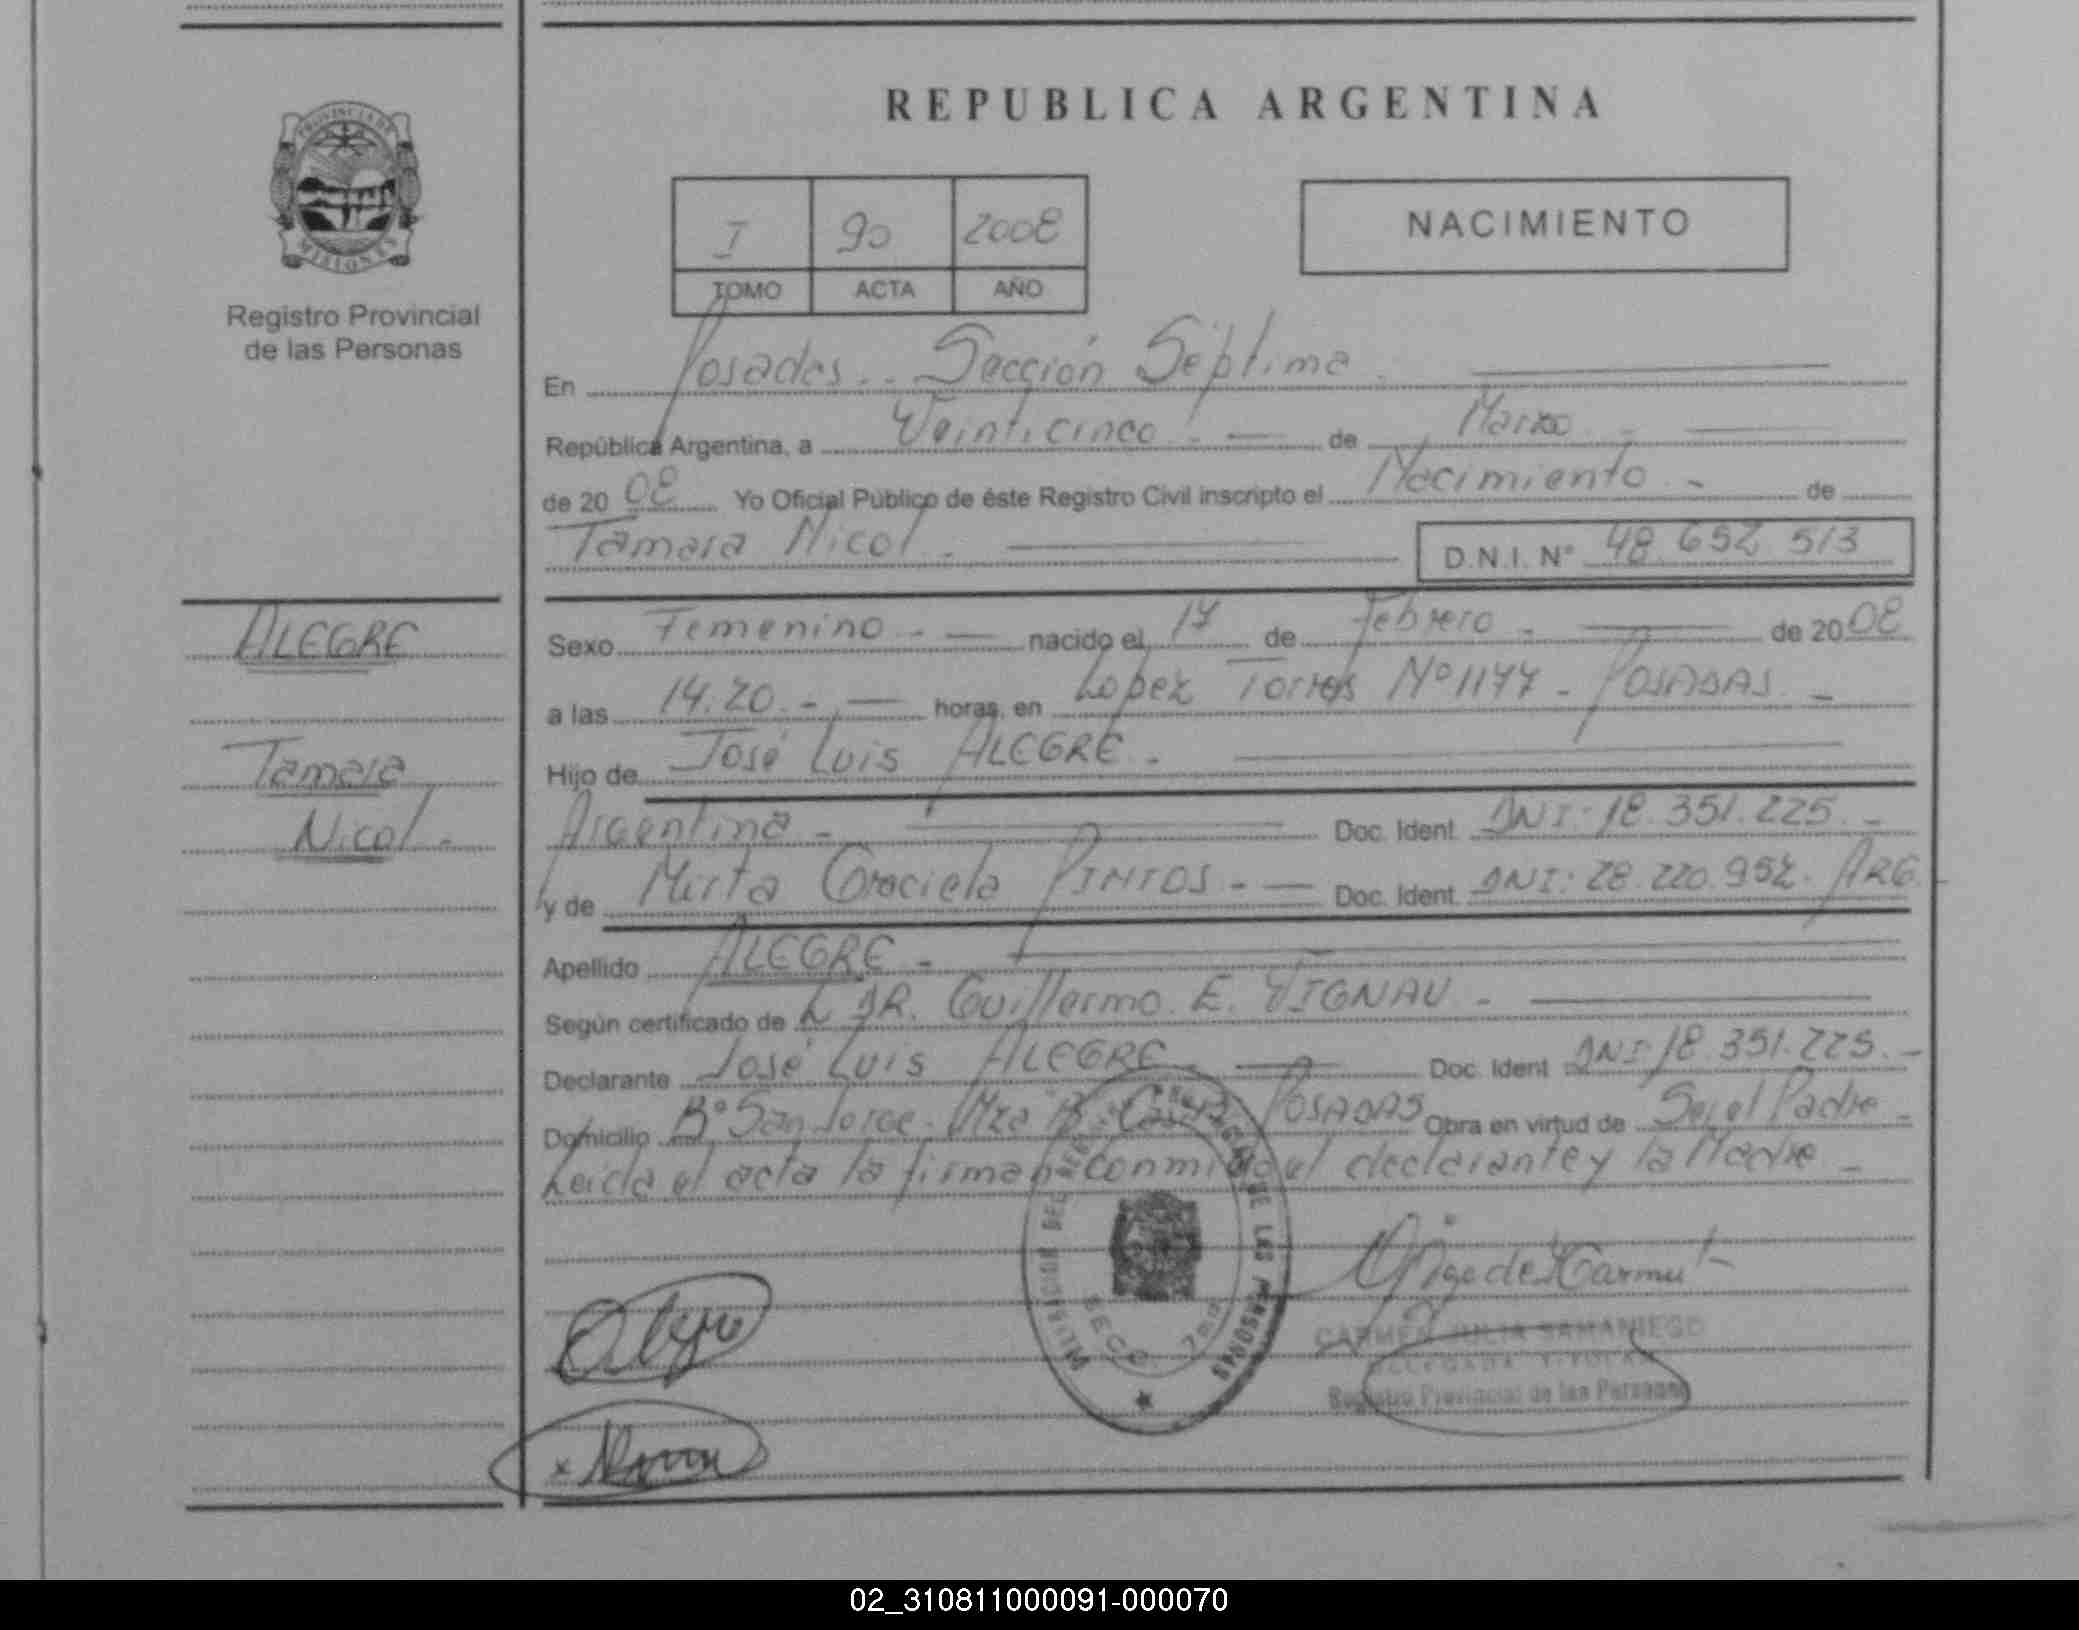 REPUBLICA ARGENTINA
PROVINCIA DE
MISIONES
Registro Provincial
de las Personas
I 90 2008
TOMO ACTA AÑO
NACIMIENTO
En Posadas.. Sección Séptima.
República Argentina, a Veinticinco.- de Marzo -
de 20 08 Yo Oficial Público de éste Registro Civil inscripto el Nacimiento - de
Tamara Nicol - D.N.I. N° 48.652.513
ALEGRE
Tamara
Nicol -
Sexo Femenino - nacido el 17 de Febrero - de 20 08
a las 14.20.- horas, en Lopez Torres Nº 1177 - POSADAS -
Hijo de José Luis ALEGRE -
Argentina - Doc. Ident. DNI: 18.351.225 -
y de Mirta Graciela PINTOS - Doc. Ident. DNI: 28.220.952. ARG.
Apellido ALEGRE -
Según certificado de L DR. Guillermo E. VIGNAU -
Declarante José Luis ALEGRE - Doc. Ident DNI 18.351.225. -
Domicilio Bº San Jorge - Mza B Casa POSADAS Obra en virtud de Ser el Padre -
Leída el acta la firman conmigo el declarante y la Madre -
DE LAS PERSONAS
SECC. 7ma
CARMEN JULIA SAMANIEGO
DELEGADA TITULAR
Registro Provincial de las Personas
02_310811000091-000070